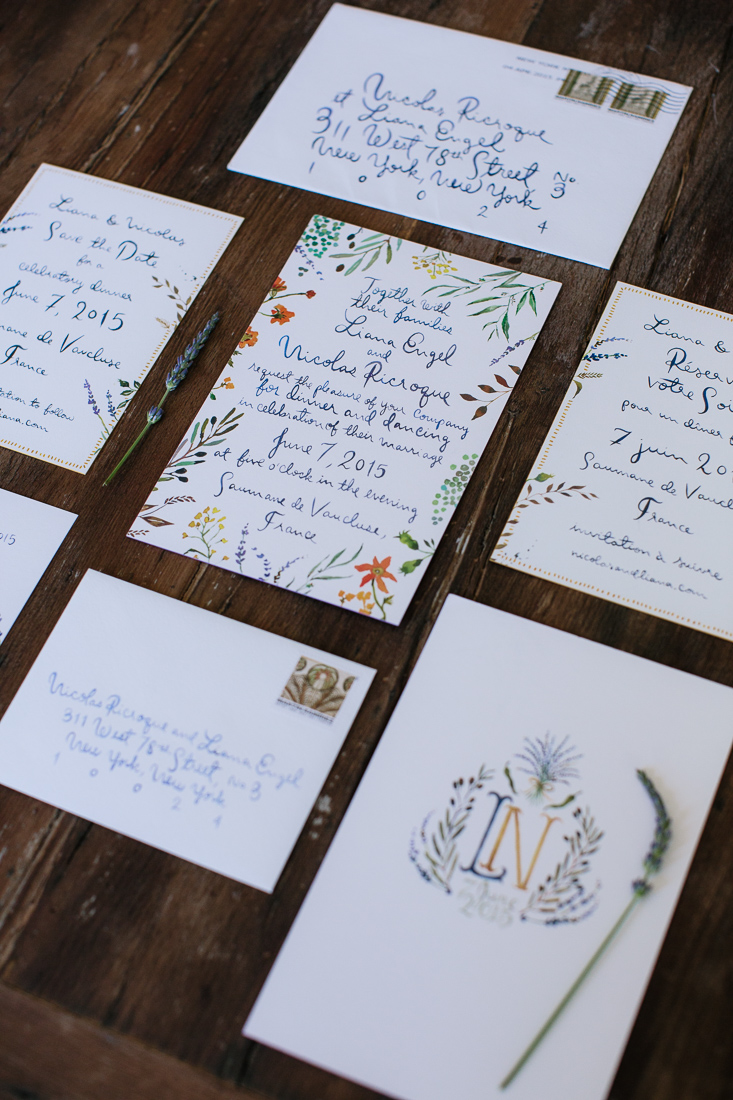 Nicolas Ricroque
et Liana Engel
311 West 78th Street, No 3
New York, New York
1 0 0 2 4
Liana & Nicolas
Save the Date
for a
celebratory dinner
June 7, 2015
de Vaucluse
France
to follow
Together with
their families
Liana Engel
and
Nicolas Ricroque
request the pleasure of your company
for dinner and dancing
in celebration of their marriage
June 7, 2015
at five o'clock in the evening
Saumane de Vaucluse,
France
Liana &
votre
pour un dîner
7 juin
Saumane de
France
invitation à suivre
nicolasandliana.com
2015
Nicolas Ricroque and Liana Engel
311 West 78th Street, No 3
New York, New York
1 0 0 2 4
LN
7 June
2015